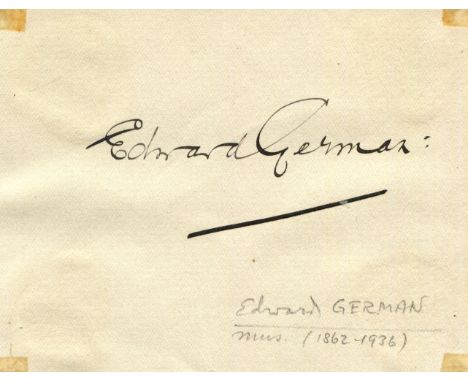 Edward German:
Edward GERMAN
mus. (1862-1936)